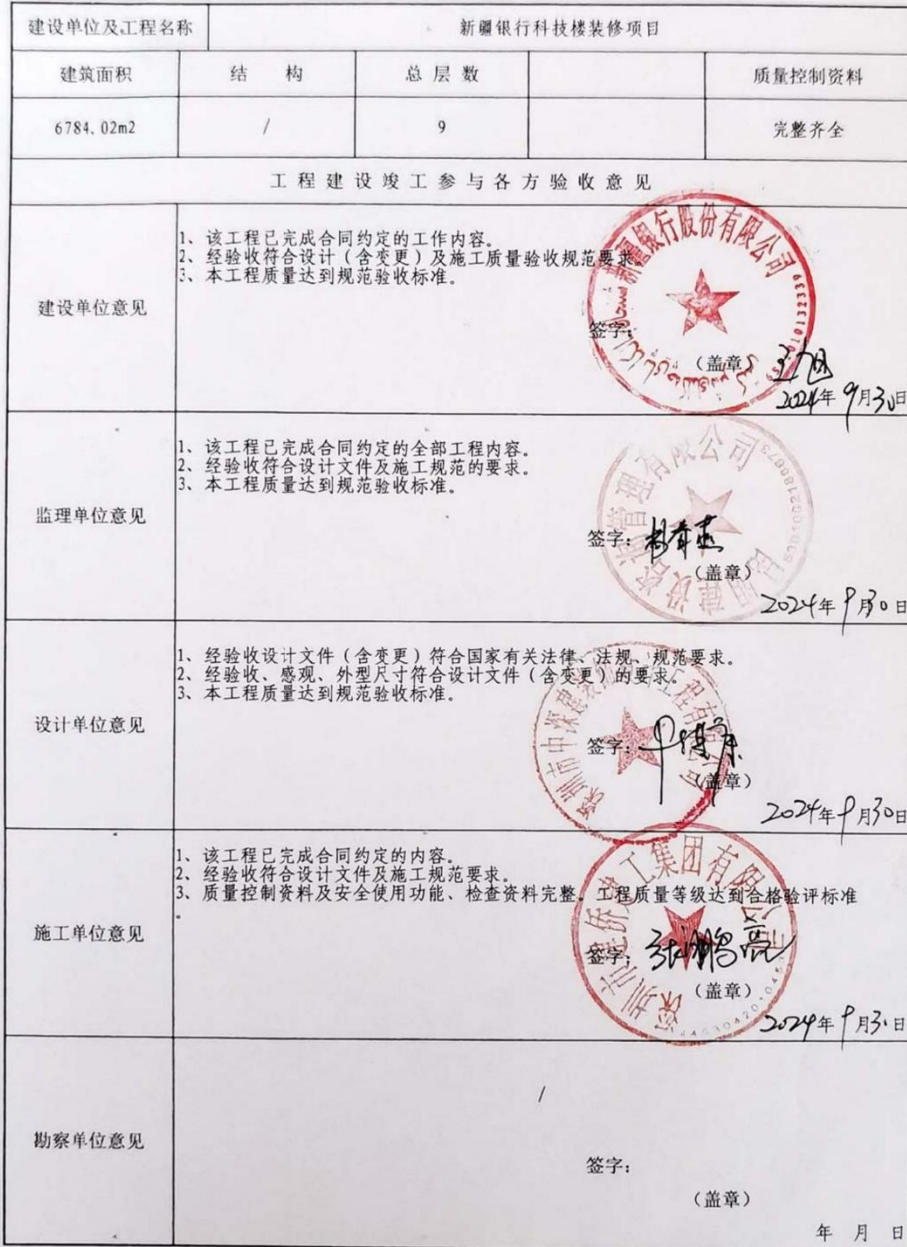 建设单位及工程名称 新疆银行科技楼装修项目
建筑面积 结 构 总 层 数 质量控制资料
6784.02m2 / 9 完整齐全
工 程 建 设 竣 工 参 与 各 方 验 收 意 见
建设单位意见
1、该工程已完成合同约定的工作内容。
2、经验收符合设计（含变更）及施工质量验收规范要求。
3、本工程质量达到规范验收标准。
新疆银行股份有限公司
签字：
（盖章）
2024年 9月30日
监理单位意见
1、该工程已完成合同约定的全部工程内容。
2、经验收符合设计文件及施工规范的要求。
3、本工程质量达到规范验收标准。
建设咨询管理有限公司
签字：
（盖章）
2024年 9月30日
设计单位意见
1、经验收设计文件（含变更）符合国家有关法律、法规、规范要求。
2、经验收、感观、外型尺寸符合设计文件（含变更）的要求。
3、本工程质量达到规范验收标准。
深圳市中深建装饰设计工程有限公司
签字：
（盖章）
2024年 9月30日
施工单位意见
1、该工程已完成合同约定的内容。
2、经验收符合设计文件及施工规范要求。
3、质量控制资料及安全使用功能、检查资料完整。工程质量等级达到合格验评标准
。
深圳市建侨建工集团有限公司
签字：张鹏亮
（盖章）
2024年 9月30日
勘察单位意见
/
签字：
（盖章）
年 月 日